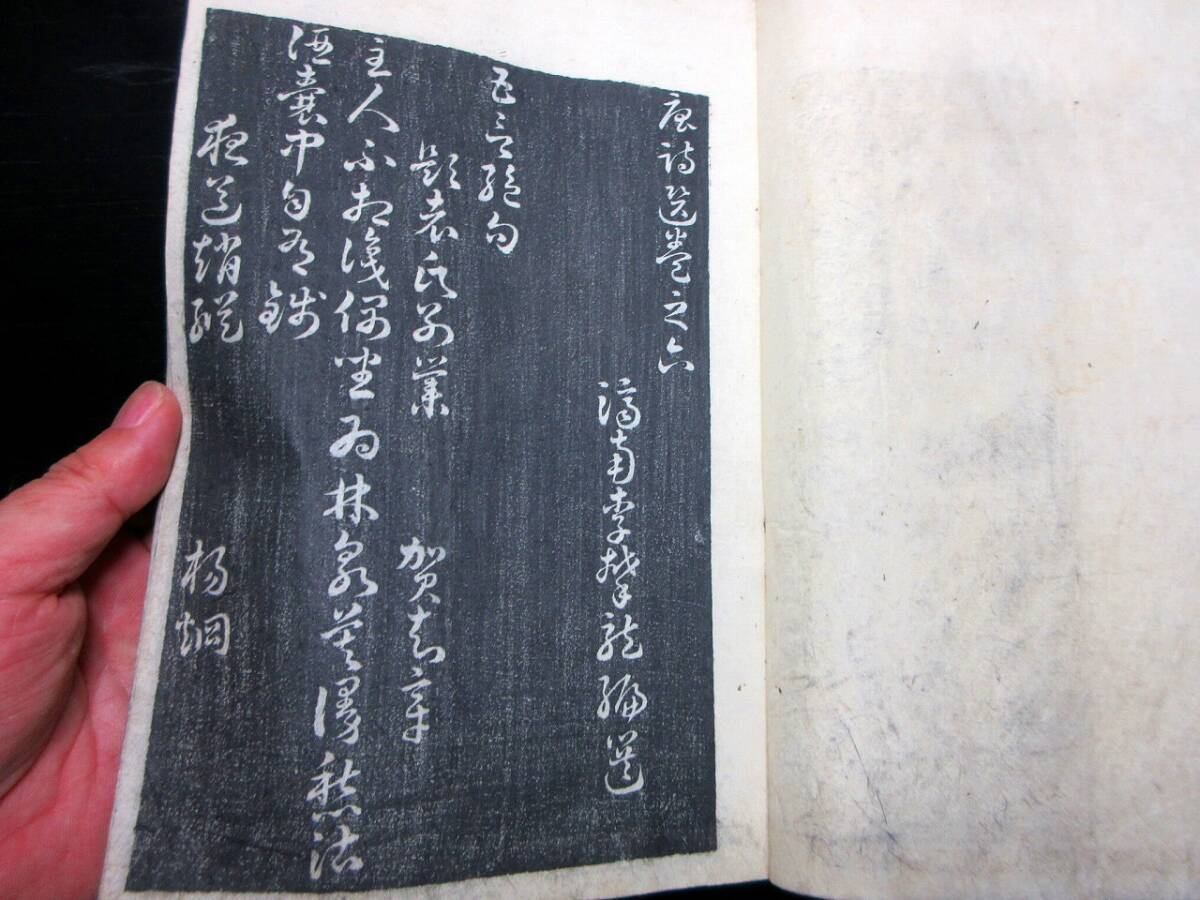 唐詩選卷之六
濟南李攀龍編選
五言絶句
題袁氏別業
賀知章
主人不相識偶坐為林泉莫謾愁沽
酒囊中自有錢
夜送趙縱
楊烱